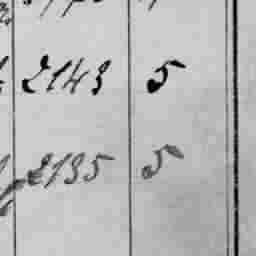 2143 5
2135 5